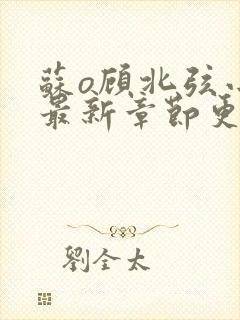 蘇o顾北弦小
最新章節更
劉全太